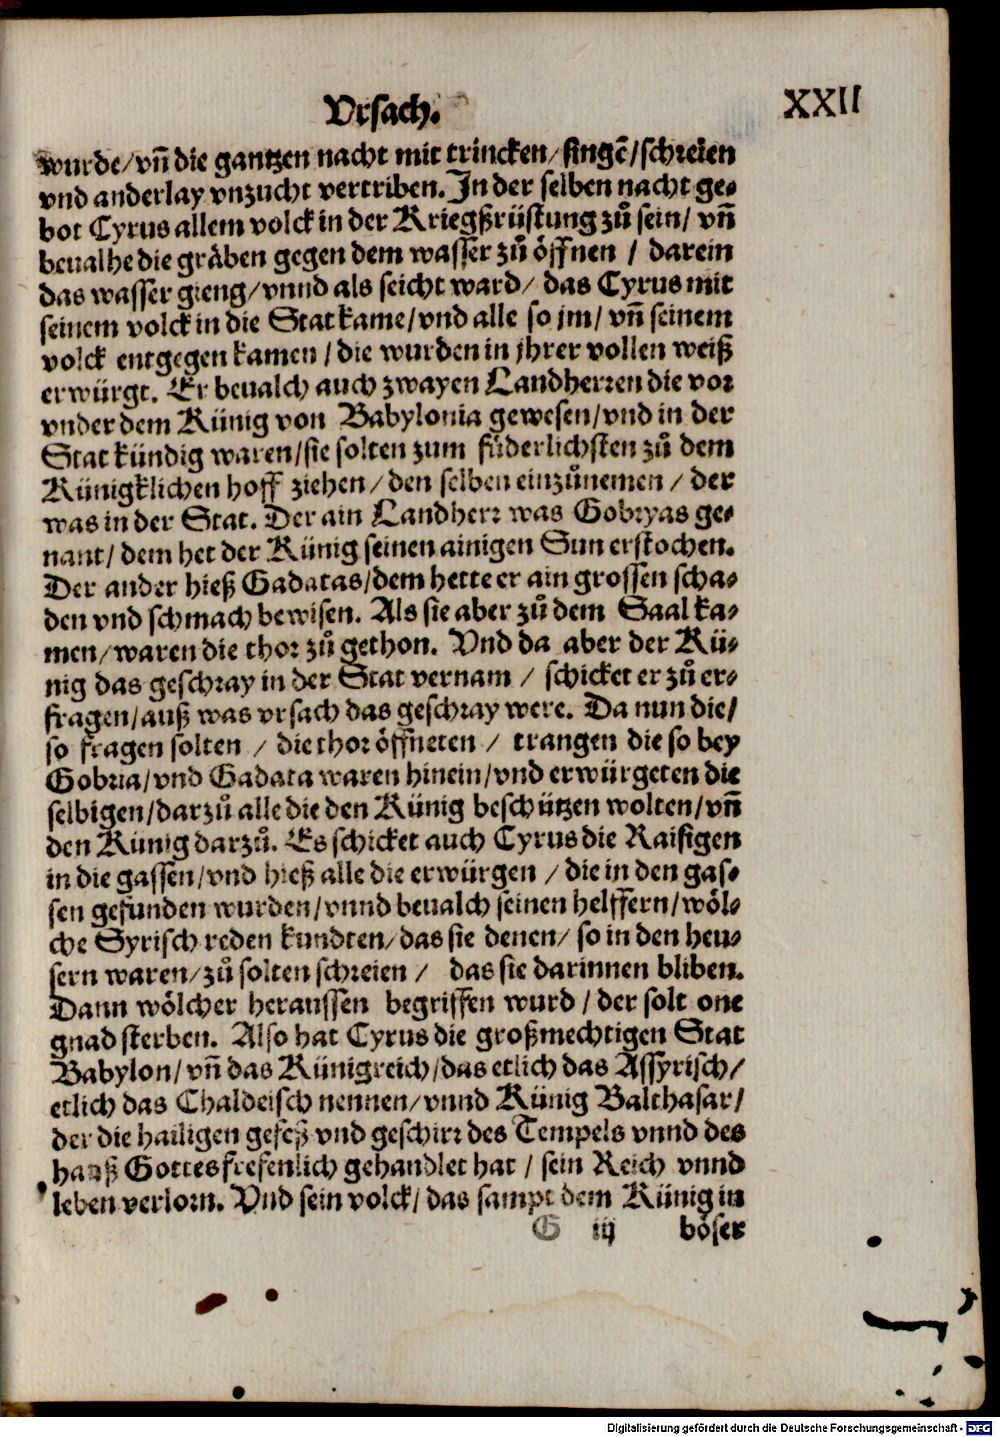 Vrsach.
XXII
wurde/vñ die gantzen nacht mit trincken/singẽ/schreien
vnd anderlay vnzucht vertriben. In der selben nacht ge⸗
bot Cyrus allem volck in der Kriegßrüstung zů sein/ vñ
beualhe die gräben gegen dem wasser zů öffnen / darein
das wasser gieng/vnnd als seicht ward/ das Cyrus mit
seinem volck in die Stat kame/vnd alle so jm/ vñ seinem
volck entgegen kamen / die wurden in jhrer vollen weiß
erwürgt. Er beualch auch zwayen Landherren die vor
vnder dem Künig von Babylonia gewesen/vnd in der
Stat kündig waren/sie solten zum füderlichsten zů dem
Künigklichen hoff ziehen/ den selben einzůnemen / der
was in der Stat. Der ain Landherr was Gobryas ge⸗
nant/ dem het der Künig seinen ainigen Sun erstochen.
Der ander hieß Gadatas/dem hette er ain grossen scha⸗
den vnd schmach bewisen. Als sie aber zů dem Saal ka⸗
men/waren die thor zů gethon. Vnd da aber der Kü⸗
nig das geschray in der Stat vernam / schicket er zů er⸗
fragen/auß was vrsach das geschray were. Da nun die/
so fragen solten / die thor öffneten / trangen die so bey
Gobria/vnd Gadata waren hinein/vnd erwürgeten die
selbigen/darzů alle die den Künig beschützen wolten/vñ
den Künig darzů. Es schicket auch Cyrus die Raisigen
in die gassen/vnd hieß alle die erwürgen / die in den gas⸗
sen gefunden wurden/vnnd beualch seinen helffern/wöl⸗
che Syrisch reden kundten/das sie denen/ so in den heu⸗
sern waren/zů solten schreien / das sie darinnen bliben.
Dann wölcher heraussen begriffen wurd / der solt one
gnad sterben. Also hat Cyrus die großmechtigen Stat
Babylon/vñ das Künigreich/das etlich das Assyrisch/
etlich das Chaldeisch nennen/vnnd Künig Balthasar/
der die hailigen gefeß vnd geschirr des Tempels vnnd des
hauß Gottes frefenlich gehandlet hat / sein Reich vnnd
leben verlorn. Vnd sein volck/ das sampt dem Künig in
G iij böser
Digitalisierung gefördert durch die Deutsche Forschungsgemeinschaft - DFG